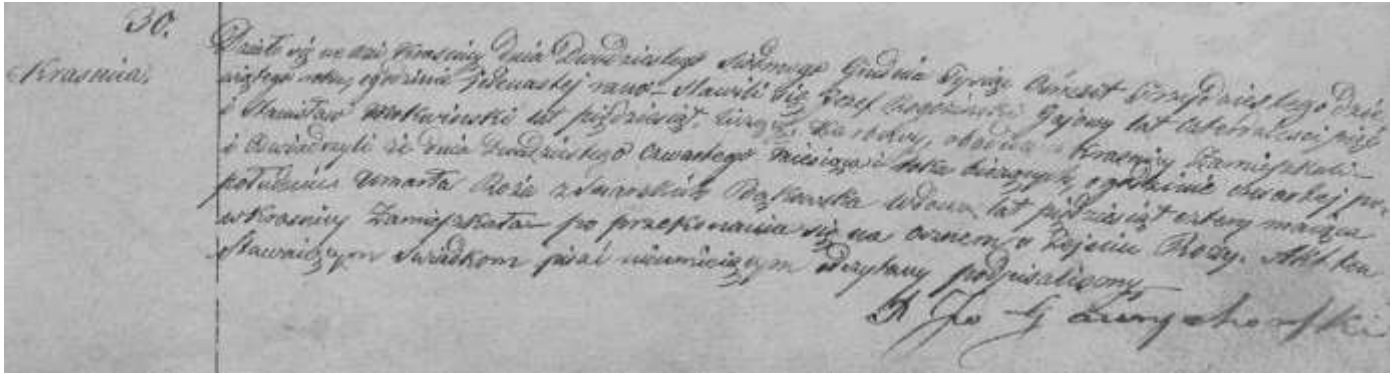 30.
Krasnica.
Działo się we wsi Krasnicy dnia Dwudziestego siódmego Grudnia Tysiąc Ośmset Trzydziestego Dzie-
wiątego roku, o godzinie Jedenastej rano - Stawili się Jozef Rogoziński Gajowy lat czterdzieści pięć
i Stanisław lat pięćdziesiąt, obadwa w Krasnicy Zamieszkali
i Oświadczyli że dnia Dwudziestego Czwartego Miesiąca i roku bieżących, o godzinie czwartej po-
południu Umarła Roża z Wdowa, lat pięćdziesiąt cztery mająca
w Krasnicy Zamieszkała - po przekonaniu się na ocznem o Zejściu Rozy. Akt ten
Stawaiącym Swiadkom pisać nieumieiącym odczytany podpisaliśmy